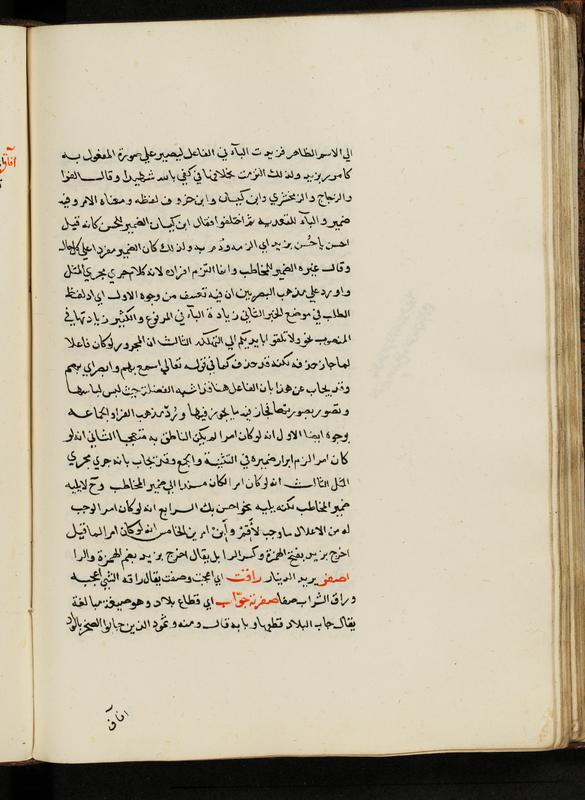 الي الاسم الظاهر فزيدت البآء في الفاعل ليصير علي صورة المفعول به
كامرر بزيد ولذلك التزمت بخلافها في كفي بالله شهيدا وقال الفرا
والزجاج والزمخشري وابن كيسان وابن خروف لفظه ومعناه الامر وفيه
ضمير والبآء للتعدية ثم اختلفوا فقال ابن كيسان الضمير للحسن كانه قيل
احسن يا حُسن بزيد اي الزمه ودُم به ولذلك كان الضمير مفردا علي كل حال
وقال غيره الضمير للمخاطب وانما التزم افراده لانه كلام جري مجري المثل
واورد علي مذهب البصريين ان فيه تعسف من وجوه الاول
الطلب في موضع الخبر الثاني زيادة البآء في المرفوع والكثير زيادتها في
المنصوب نحو ولا تلقوا بايديكم الي التهلكه الثالث ان المجرور لو كان فاعلا
لما جاز حذفه لكنه قد حذف كما في قوله تعالي اسمع بهم وابصر اي بهم
وقد يجاب عن هذا بان الفاعل هنا قد اشبه الفضلة حيث لبس لباسها
وتصور بصورتها فجاز فيه ما يجوز فيها ورُدّ مذهب الفرا والجماعه
بوجوه ايضا الاول انه لو كان امرا لم يكن الناطق به متعجبا الثاني انه لو
كان امرا لزم ابراز ضميره في التثنية والجمع وقد يجاب بانه جري مجري
المثل الثالث انه لو كان امرا لكان مسندا الي ضمير المخاطب وح لا يليه
ضمير المخاطب لكنه يليه نحو احسن بك الرابع انه لو كان امرا لوجب
له من الاعلال ما وجب لأقمْ وأبنْ الخامس انه لو كان امرا لما قيل
اخرج بزيد بفتح الهمزة وكسر الرا بل يقال اخرج بزيد بضم الهمزة والرا
اصفر يريد الدينار راقت اي اعجبت وصفت يقال راقه الشي اعجبه
وراق الشراب صفا صفرته جوّاب اي قطاع بلاد وهو صيغة مبالغة
يقال جاب البلاد قطعها وبابه قال ومنه وثمود الذين جابوا الصخر بالواد
افاق
افاق